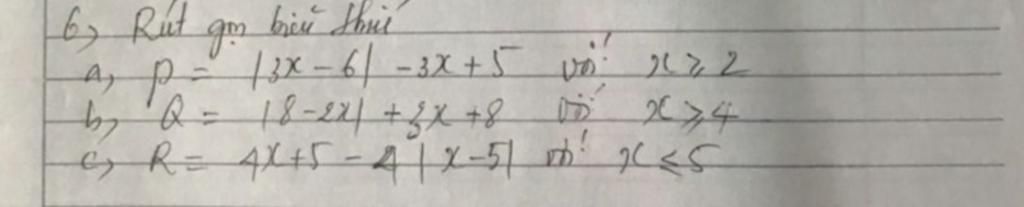 6, Rút gọn biểu thức
a, P = |3x - 6| - 3x + 5 với x ⩾ 2
b, Q = |8 - 2x| + 3x + 8 với x ⩾ 4
c, R = 4x + 5 - 4|x - 5| với x ⩽ 5